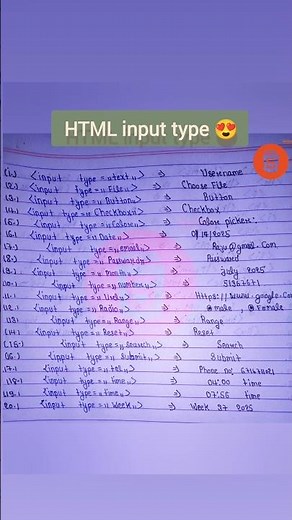 HTML input type 😍
(1.) <input type="text"> ⇒ Username
(2.) <input type="File"> ⇒ Choose File
(3.) <input type="Button"> ⇒ Button
(4.) <input type="Checkbox"> ⇒ Checkbox
(5.) <input type="Color"> ⇒ Color picker:
(6.) <input type="Date"> ⇒ 2025
(7.) <input type="email"> ⇒ @gmail.Com
(8.) <input type="Password"> ⇒ Password
(9.) <input type="month"> ⇒ july 2025
(10.) <input type="number"> ⇒
(11.) <input type="Url"> ⇒ Https://www.google.Com
(12.) <input type="Radio"> ⇒ @male, @Female
<input type="Range"> ⇒ Range
(14.) <input type="Reset"> ⇒ Reset
(15.) <input type="Search"> ⇒ Search
(16.) <input type="Submit"> ⇒ Submit
(17.) <input type="tel"> ⇒ Phone no;
(18.) <input type="Time"> ⇒ 04:00 time
(19.) <input type="time"> ⇒ 07:55 time
20.) <input type="Week"> ⇒ Week 27 2025